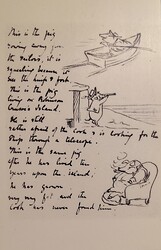 This is the pig
rowing away from
the sailors, it is
squealing because it
sees the knife & fork
This is the pig
living on Robinson
Crusoe's island,
He is still
rather afraid of the Cook & is looking for the
Ships through a telescope.
This is the same pig
after he has lived ten
years upon the island,
he has grown
very very fat and the
Cook has never found him.